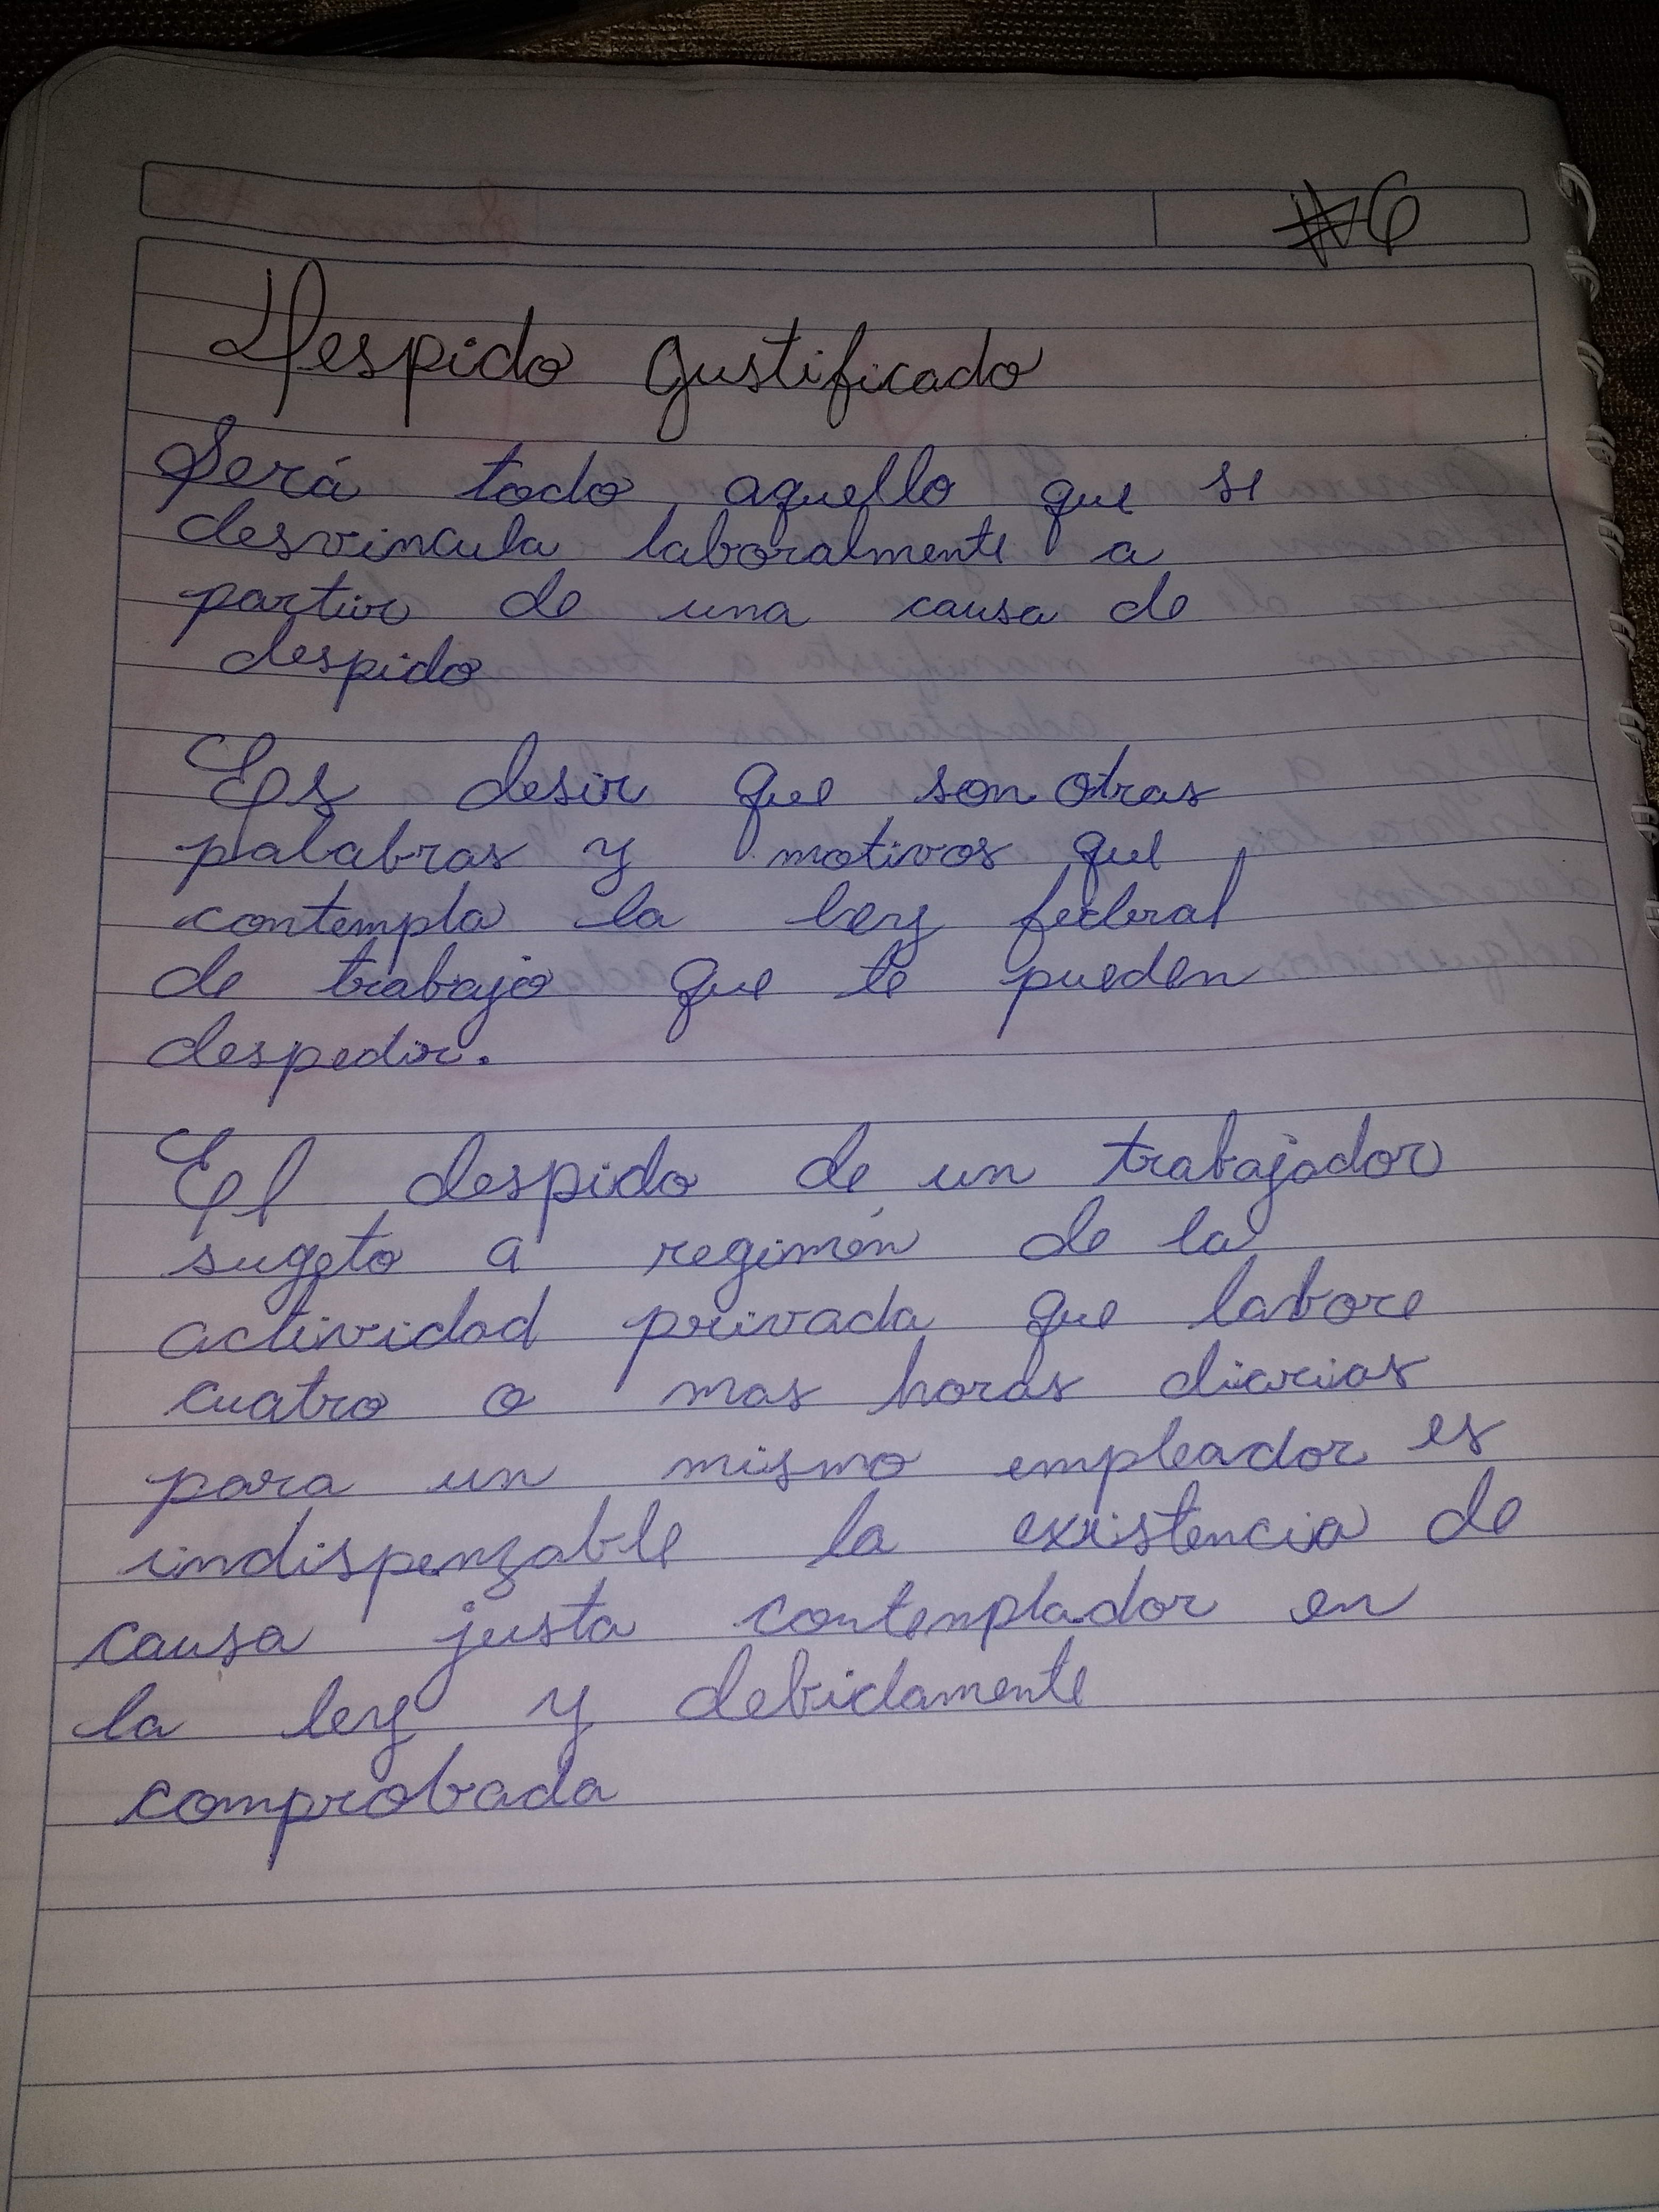 #6
Despido Justificado
Será todo aquello que se
desvincula laboralmente a
partir de una causa de
despido
Es desir que son otras
palabras y motivos que
contempla la ley federal
de trabajo que te pueden
despedir.
El despido de un trabajador
sugeto a regimén de la
actividad privada que labore
cuatro o mas horas diarias
para un mismo empleador es
indispenzable la existencia de
causa justa contemplador en
la ley y debidamente
comprobada